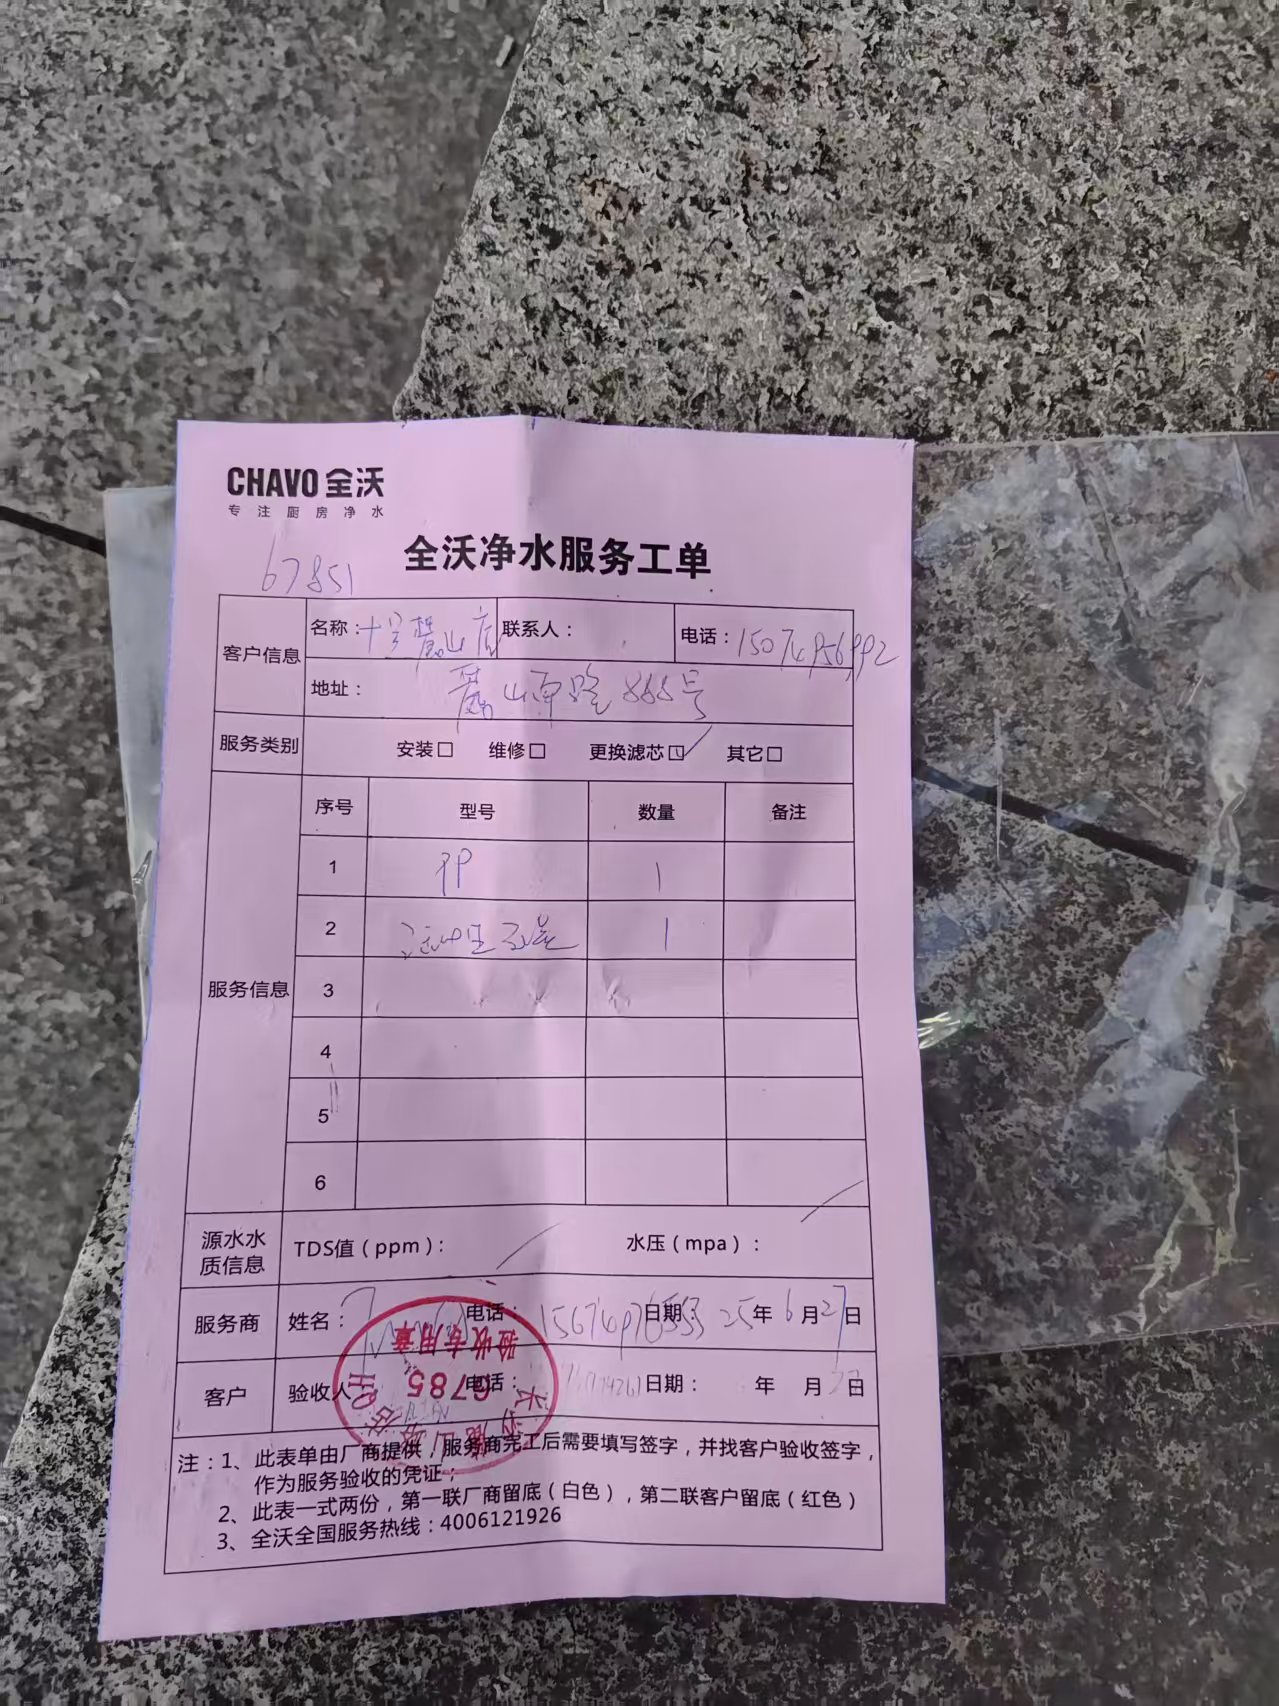 CHAVO 全沃
专注厨房净水
全沃净水服务工单
67851
客户信息 名称：十字麓山店 联系人： 电话：15074956992
地址：麓山南路888号
服务类别 安装□ 维修□ 更换滤芯□ 其它□
服务信息 序号 型号 数量 备注
1 PP 1
2 1
3
4
5
6
源水水质信息 TDS值（ppm）： 水压（mpa）：
服务商 姓名： 电话： 日期 25年6月27日
客户 验收人 电话： 日期： 年 月 日
验收专用章
6785
注：1、此表单由厂商提供，服务商完工后需要填写签字，并找客户验收签字，
作为服务验收的凭证；
2、此表一式两份，第一联厂商留底（白色），第二联客户留底（红色）
3、全沃全国服务热线：4006121926